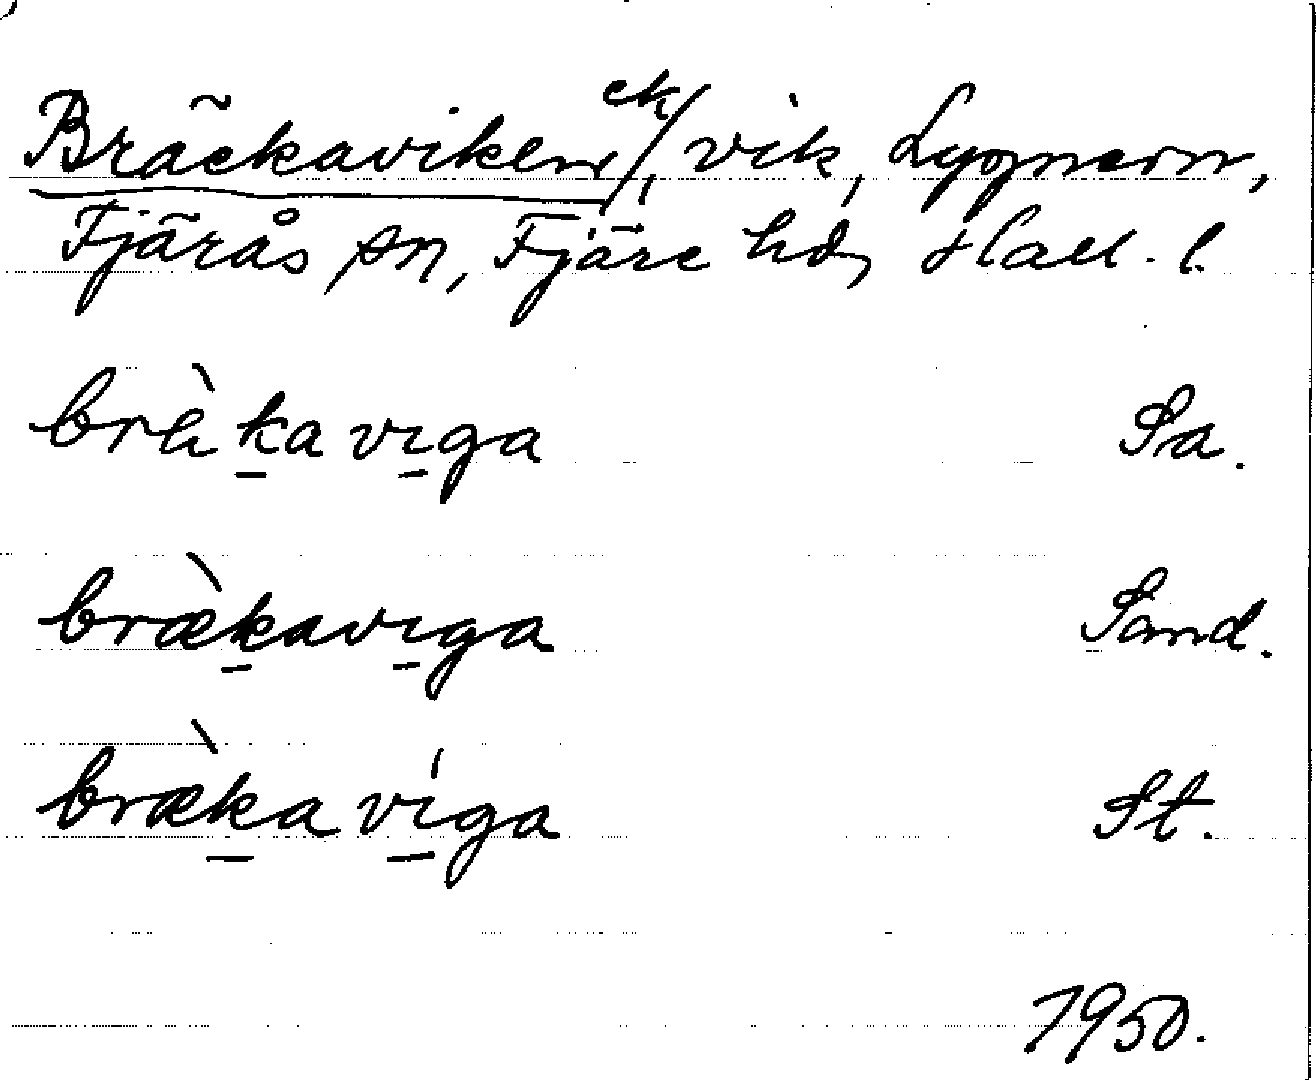 Bräckaviken, ek/ vik, Lygnern,
Fjärås sn, Fjäre hd, Hall. l.
brä̀ka vıga Sa.
bræ̀kavıga Sand.
bræ̀ka víga St.
1950.